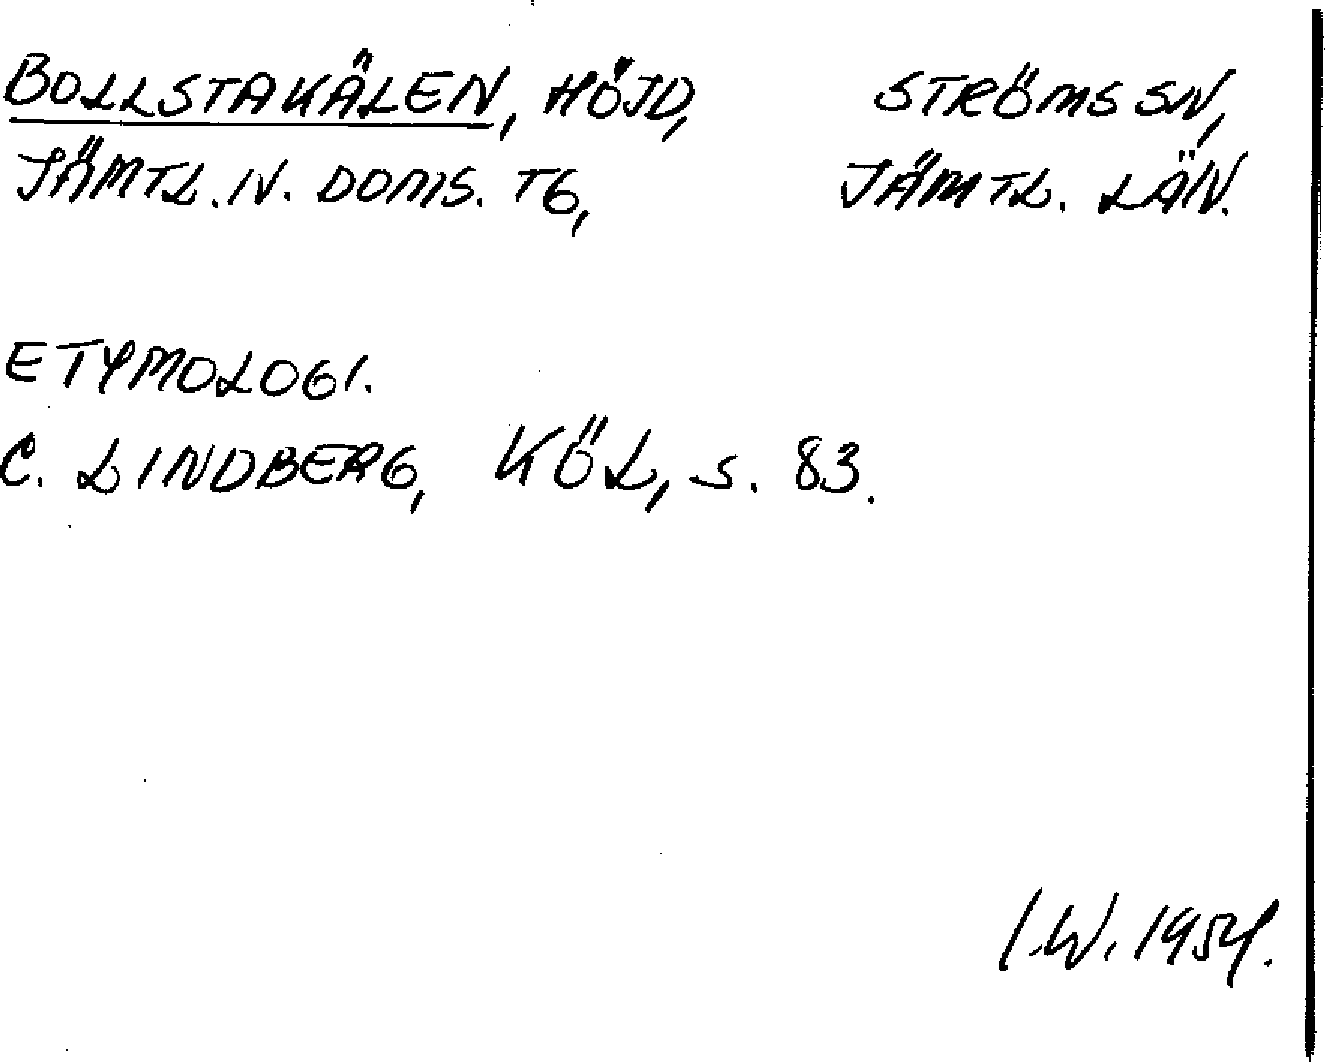 BOLLSTAKÄLEN, HÖJD, STRÖMS SN,
JÄMTL. N. DOMS. TG, JÄMTL. LÄN.
ETYMOLOGI.
C. LINDBERG, KÖL, S. 83.
I.W. 1954.